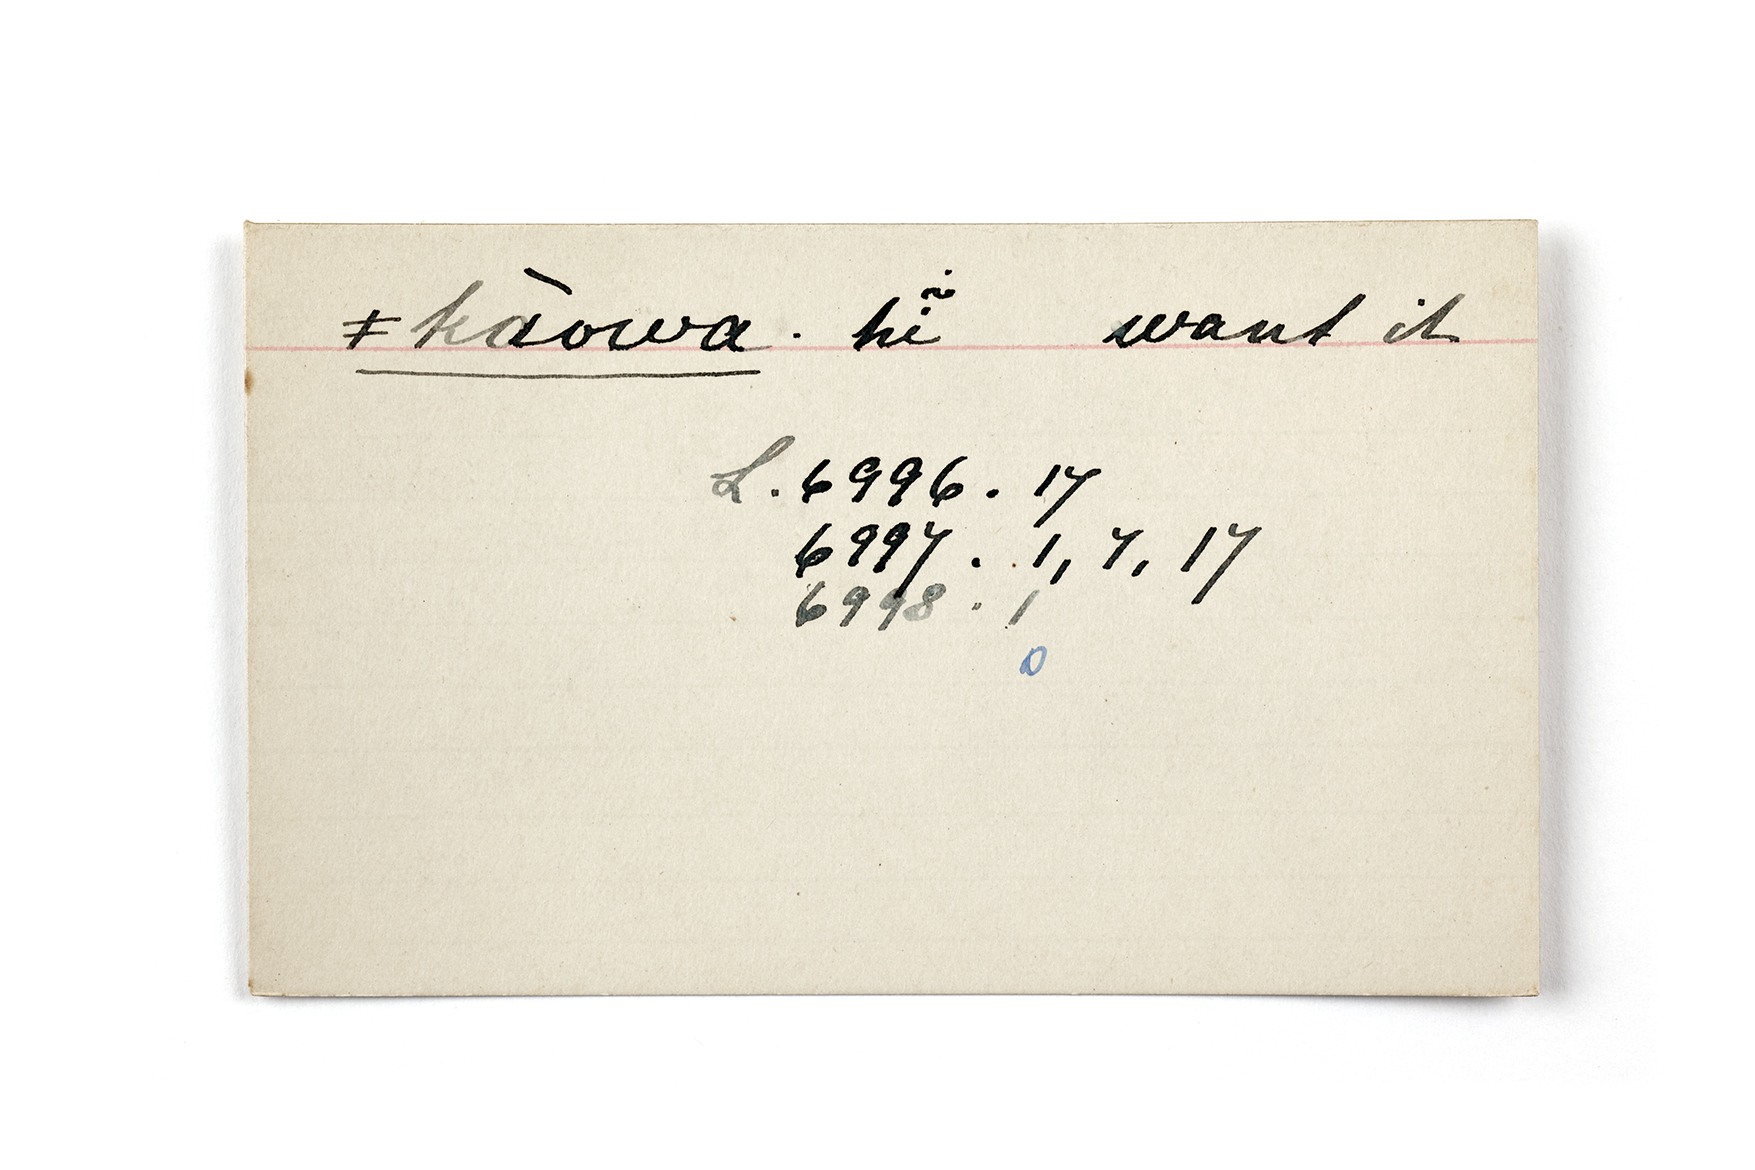 ǂkàowa . hĩ want it
L. 6996 . 17
6997 . 1, 7, 17
6998 . 1